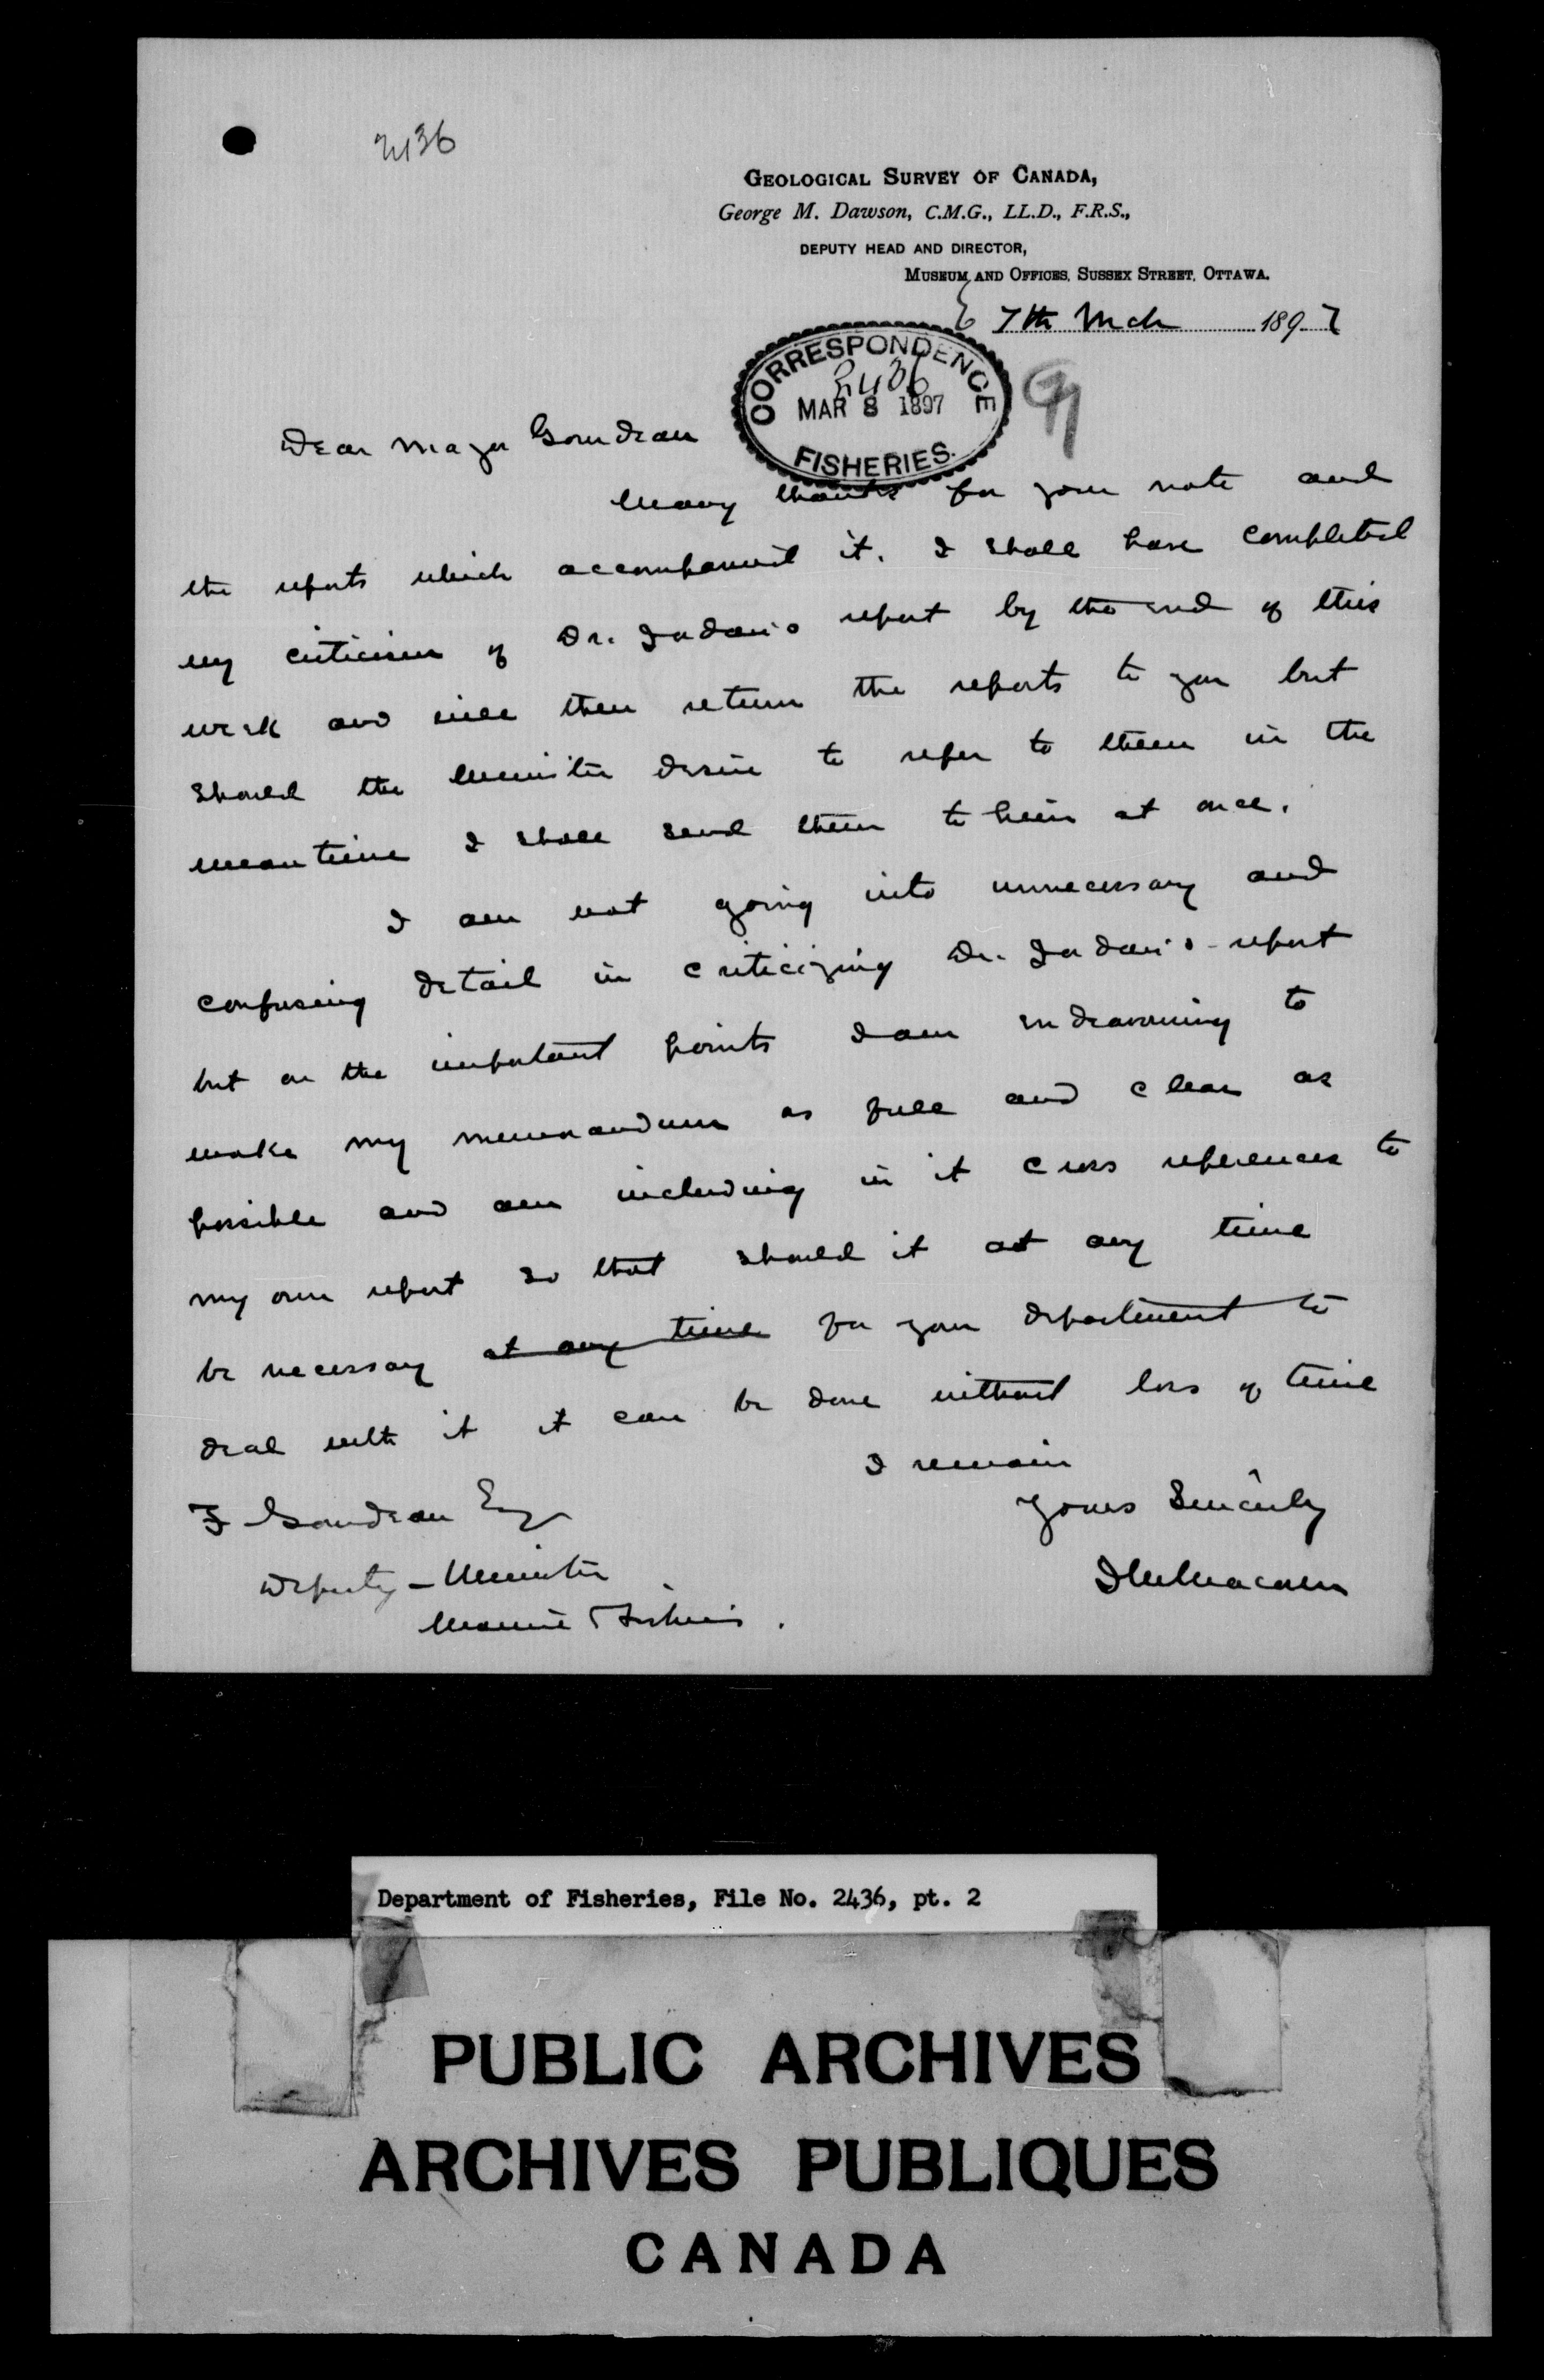 2436
GEOLOGICAL SURVEY OF CANADA,
George M. Dawson, C.M.G., LL.D., F.R.S.,
DEPUTY HEAD AND DIRECTOR,
MUSEUM AND OFFICES, SUSSEX STREET, OTTAWA.
7th Mch 1897
CORRESPONDENCE
2436
MAR 8 1897
FISHERIES.
Dear Major Gourdeau
Many thanks for your note and
the reports which accompanied it. I shall have completed
my criticism of Dr. Jordan's report by the end of this
week and will then return the reports to you but
should the Minister desire to refer to them in the
meantime I shall send them to him at once.
I am not going into unnecessary and
confusing detail in criticizing Dr. Jordan's report
but on the important points I am endeavouring to
make my memorandum as full and clear as
possible and am including in it cross references to
my own report so that should it at any time
be necessary at any time for your department to
deal with it it can be done without loss of time
I remain
Yours Sincerely
J M Macoun
F Gourdeau Esq
Deputy-Minister
Marine & Fisheries.
Department of Fisheries, File No. 2436, pt. 2
PUBLIC ARCHIVES
ARCHIVES PUBLIQUES
CANADA